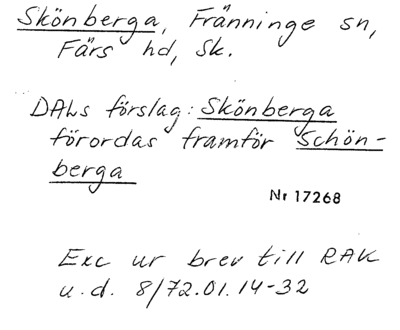 Skönberga, Fränninge sn,
Färs hd, Sk.
DALs förslag: Skönberga
förordas framför Schön-
berga
Nr 17268
Exc ur brev till RAK
u.d. 8/72.01.14-32